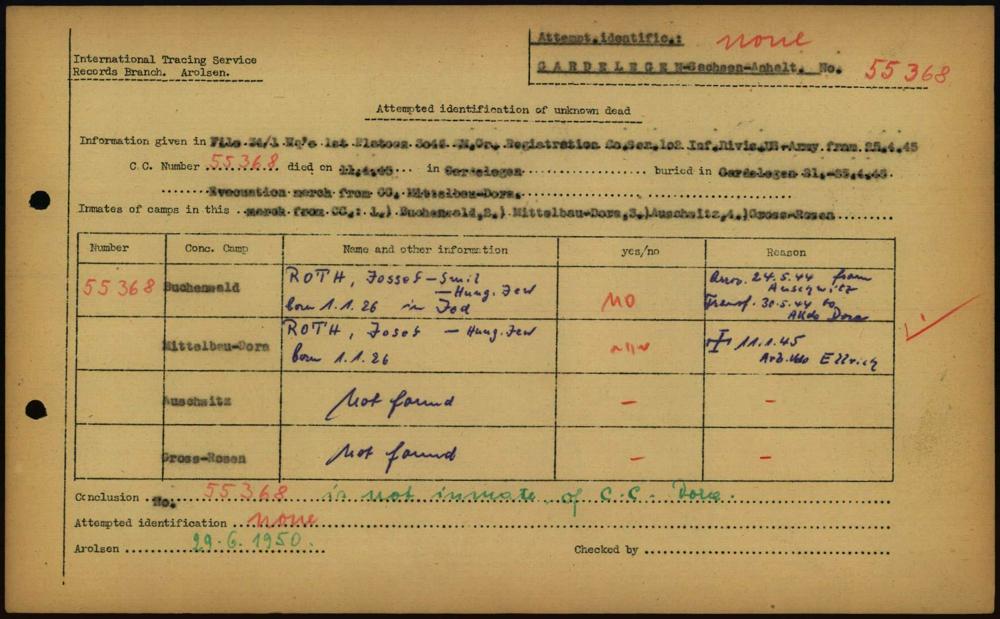 International Tracing Service
Records Branch. Arolsen.
Attempt.identific.: none
GARDELEGEN-Sachsen-Anhalt. No. 55368
Attempted identification of unknown dead
Information given in File 24/1 Hq's 1st Platoon 3046 Registration Co. 102 Inf.Divis.US-Army from 25.4.45
C.C. Number 55368 died on in Gardelegen buried in Gardelegen 21.-25.4.45
Evacuation march from CC. Mittelbau-Dora.
Inmates of camps in this march from CC.: 1.) Buchenwald, 2.) Mittelbau-Dora, 3.) Auschwitz, 4.) Gross-Rosen
Number Conc. Camp Name and other information yes/no Reason
55368 Buchenwald ROTH, Jossef - Smil
- Hung. Jew
born 1.1.26 in Jod no arr. 24.5.44 from
Auschwitz
Transf. 30.5.44 to
Akdo Dora
Mittelbau-Dora ROTH, Josef - Hung. Jew
born 1.1.26 -"- 11.1.45
Arb.kdo Ellrich
Auschwitz Not found - -
Gross-Rosen Not found - -
Conclusion No. 55368 is not inmate of C.C. Dora.
Attempted identification none
Arolsen 29.6.1950. Checked by